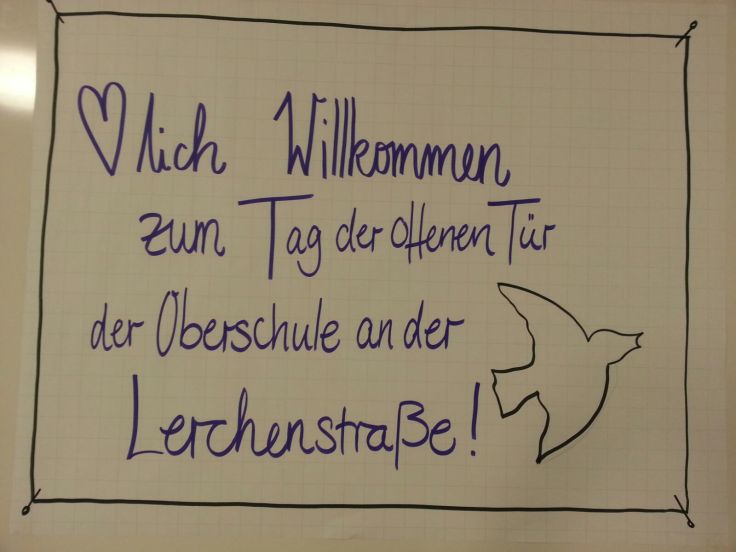 ♡lich Willkommen
zum Tag der offenen Tür
der Oberschule an der
Lerchenstraße!